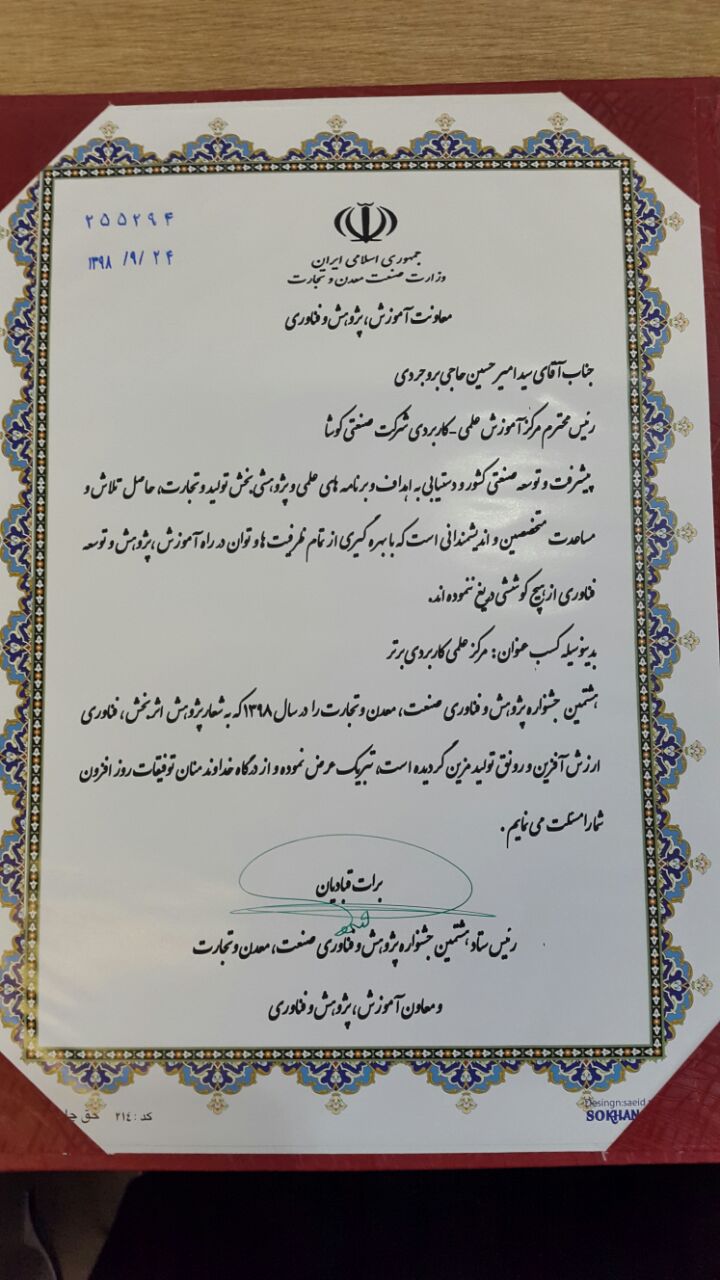 ۲۵۵۲۹۴
۱۳۹۸/۹/۲۴
جمهوری اسلامی ایران
وزارت صنعت معدن و تجارت
معاونت آموزش، پژوهش و فناوری
جناب آقای سید امیر حسین حاجی بروجردی
رئیس محترم مرکز آموزش علمی-کاربردی شرکت صنعتی کوشا
پیشرفت و توسعه صنعتی کشور و دستیابی به اهداف و برنامه های علمی و پژوهشی بخش تولید و تجارت، حاصل تلاش و
مساعدت متخصصین و اندیشمندانی است که با بهره گیری از تمام ظرفیت ها و توان در راه آموزش، پژوهش و توسعه
فناوری از هیچ کوششی دریغ ننموده اند.
بدینوسیله کسب عنوان: مرکز علمی کاربردی برتر
هشتمین جشنواره پژوهش و فناوری صنعت، معدن و تجارت را در سال ۱۳۹۸ که به شعار پژوهش اثربخش، فناوری
ارزش آفرین و رونق تولید مزین گردیده است، تبریک عرض نموده و از درگاه خداوند منان توفیقات روز افزون
شما را مسئلت می نمایم.
برات قبادیان
رئیس ستاد هشتمین جشنواره پژوهش و فناوری صنعت، معدن و تجارت
و معاون آموزش، پژوهش و فناوری
کد: ۲۱۴ حق
Desingn:saeid
SOKHAN